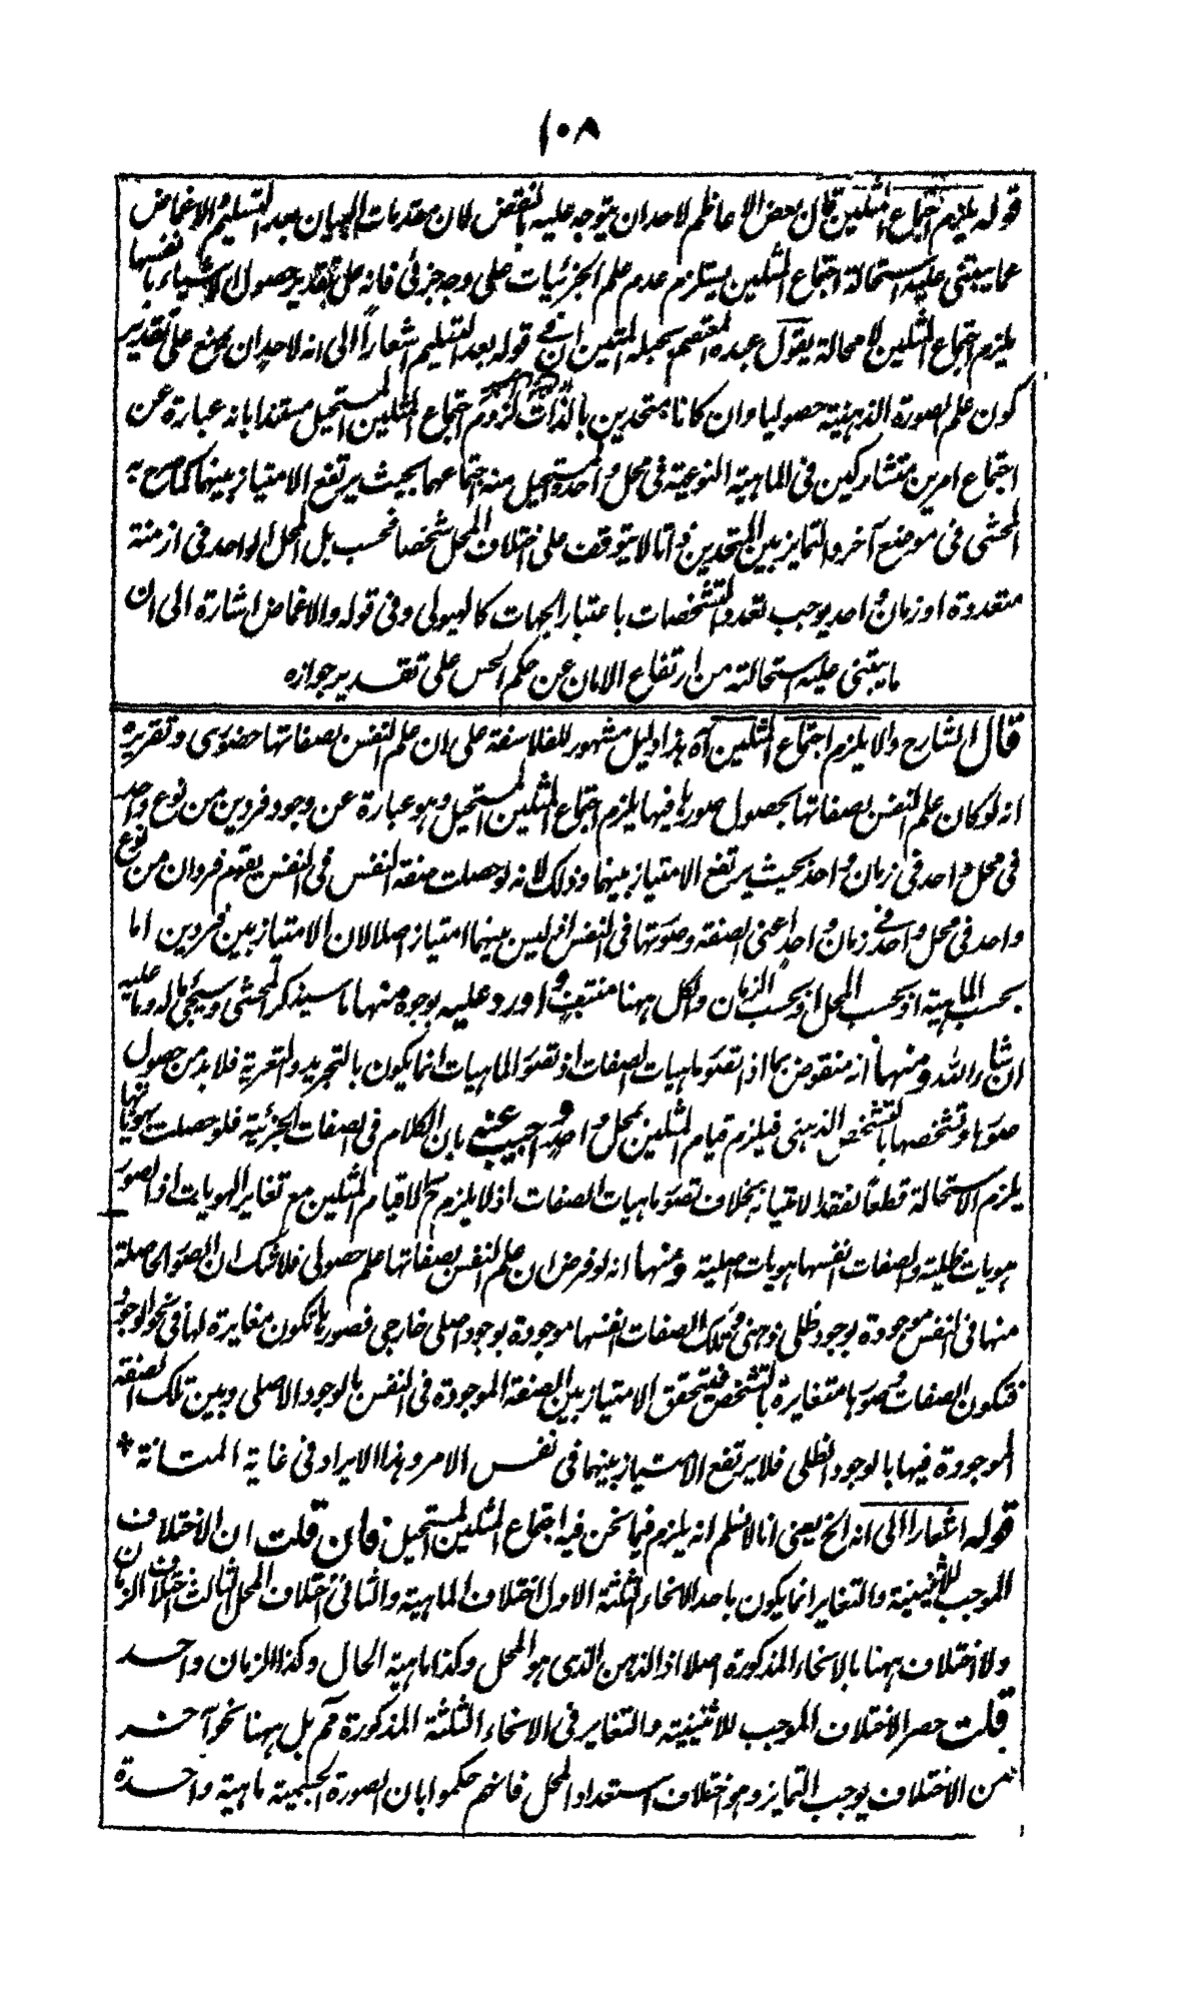 ١٠٨
قوله يلزم اجتماع المثلين قال بعض الاعاظم لاحد ان يتوجه عليه بالنقض لان مقدمات البرهان بعد التسليم والاغماض
عما يبتنى عليه استحالة اجتماع المثلين يستلزم عدم علم الجزئيات على وجه جزئى فانه على تقدير حصول الاشياء بانفسها
يلزم اجتماع المثلين لا محالة يقول عبده المعتصم بحبله المتين ان فى قوله بعد التسليم اشعاراً الى انه لاحد ان يمنع على تقدير
كون علم الصورة الذهنية حصوليا وان كانا متحدين بالذات لزوم اجتماع المثلين المستحيل مستندا بانه عبارة عن
اجتماع امرين متشاركين فى الماهية النوعية فى محل واحد والمستحيل منه اجتماعهما بحيث يرتفع الامتياز بينهما كما صرح به
المحشى فى موضع آخر والتمايز بين المتحدين ذاتا لا يتوقف على اختلاف المحل شخصا فحسب بل المحل الواحد فى ازمنة
متعددة او زمان واحد يوجب تعدد التشخصات باعتبار الجهات كالهيولى وفى قوله والاغماض اشارة الى ان
ما يبتنى عليه استحالته من ارتفاع الامان عن حكم الحس على تقدير جوازه
قال الشارح والا يلزم اجتماع المثلين آه هذا دليل مشهور للفلاسفة على ان علم النفس بصفاتها حضورى وتقريره
انه لو كان علم النفس بصفاتها بحصول صورها فيها يلزم اجتماع المثلين المستحيل وهو عبارة عن وجود فردين من نوع واحد
فى محل واحد فى زمان واحد بحيث يرتفع الامتياز بينهما وذلك لانه لو حصلت صفة النفس فى النفس يقوم فردان من نوع
واحد فى محل واحد فى زمان واحد اعنى الصفة وصورتها فى النفس اذ ليس بينهما امتياز اصلا لان الامتياز بين فردين اما
بحسب الماهية او بحسب المحل او بحسب الزمان والكل ههنا منتف واورد عليه بوجوه منها ما سيذكر المحشى وسيجئ ماله وما عليه
ان شاء الله ومنها انه منقوض بما اذا تصور ماهيات الصفات اذ تصور الماهيات انما يكون بالتجريد والتعرية فلا بد من حصول
صورها وتشخصها بالتشخص الذهنى فيلزم قيام المثلين بمحل واحد واجيب عنه بان الكلام فى الصفات الجزئية فلو حصلت بهوياتها
يلزم الاستحالة قطعاً لفقد الامتياز بخلاف تصور ماهيات الصفات اذ لا يلزم ح الا قيام المثلين مع تغاير الهويات اذ الصور
هويات ظلية والصفات انفسها هويات اصلية ومنها انه لو فرض ان علم النفس بصفاتها علم حصولى فلا شك ان الصور الحاصلة
منها فى النفس موجودة بوجود ظلى ذهنى وتلك الصفات انفسها موجودة بوجود اصلى خارجى فصورها تكون مغايرة لها فى نحو الوجود
فتكون الصفات وصورها متغايرة بالتشخص فيتحقق الامتياز بين الصفة الموجودة فى النفس بالوجود الاصلى وبين تلك الصفة
الموجودة فيها بالوجود الظلى فلا يرتفع الامتياز بينهما فى نفس الامر وهذا الايراد فى غاية المتانة *
قوله اشعارا الى انه الخ يعنى انا لا نسلم انه يلزم فيما نحن فيه اجتماع المثلين المستحيل فان قلت ان الاختلاف
الموجب للاثنينية والتغاير انما يكون باحد الانحاء الثلثة الاول اختلاف الماهية والثانى اختلاف المحل الثالث اختلاف الزمان
ولا اختلاف ههنا بالانحاء المذكورة اصلا اذ الذهن الذى هو المحل وكذا ماهية الحال وكذا الزمان واحد
قلت حصر الاختلاف الموجب للاثنينية والتغاير فى الانحاء الثلثة المذكورة مم بل ههنا نحو آخر
من الاختلاف يوجب التمايز وهو اختلاف استعداد المحل فانهم حكموا بان الصورة الجسمية ماهية واحدة